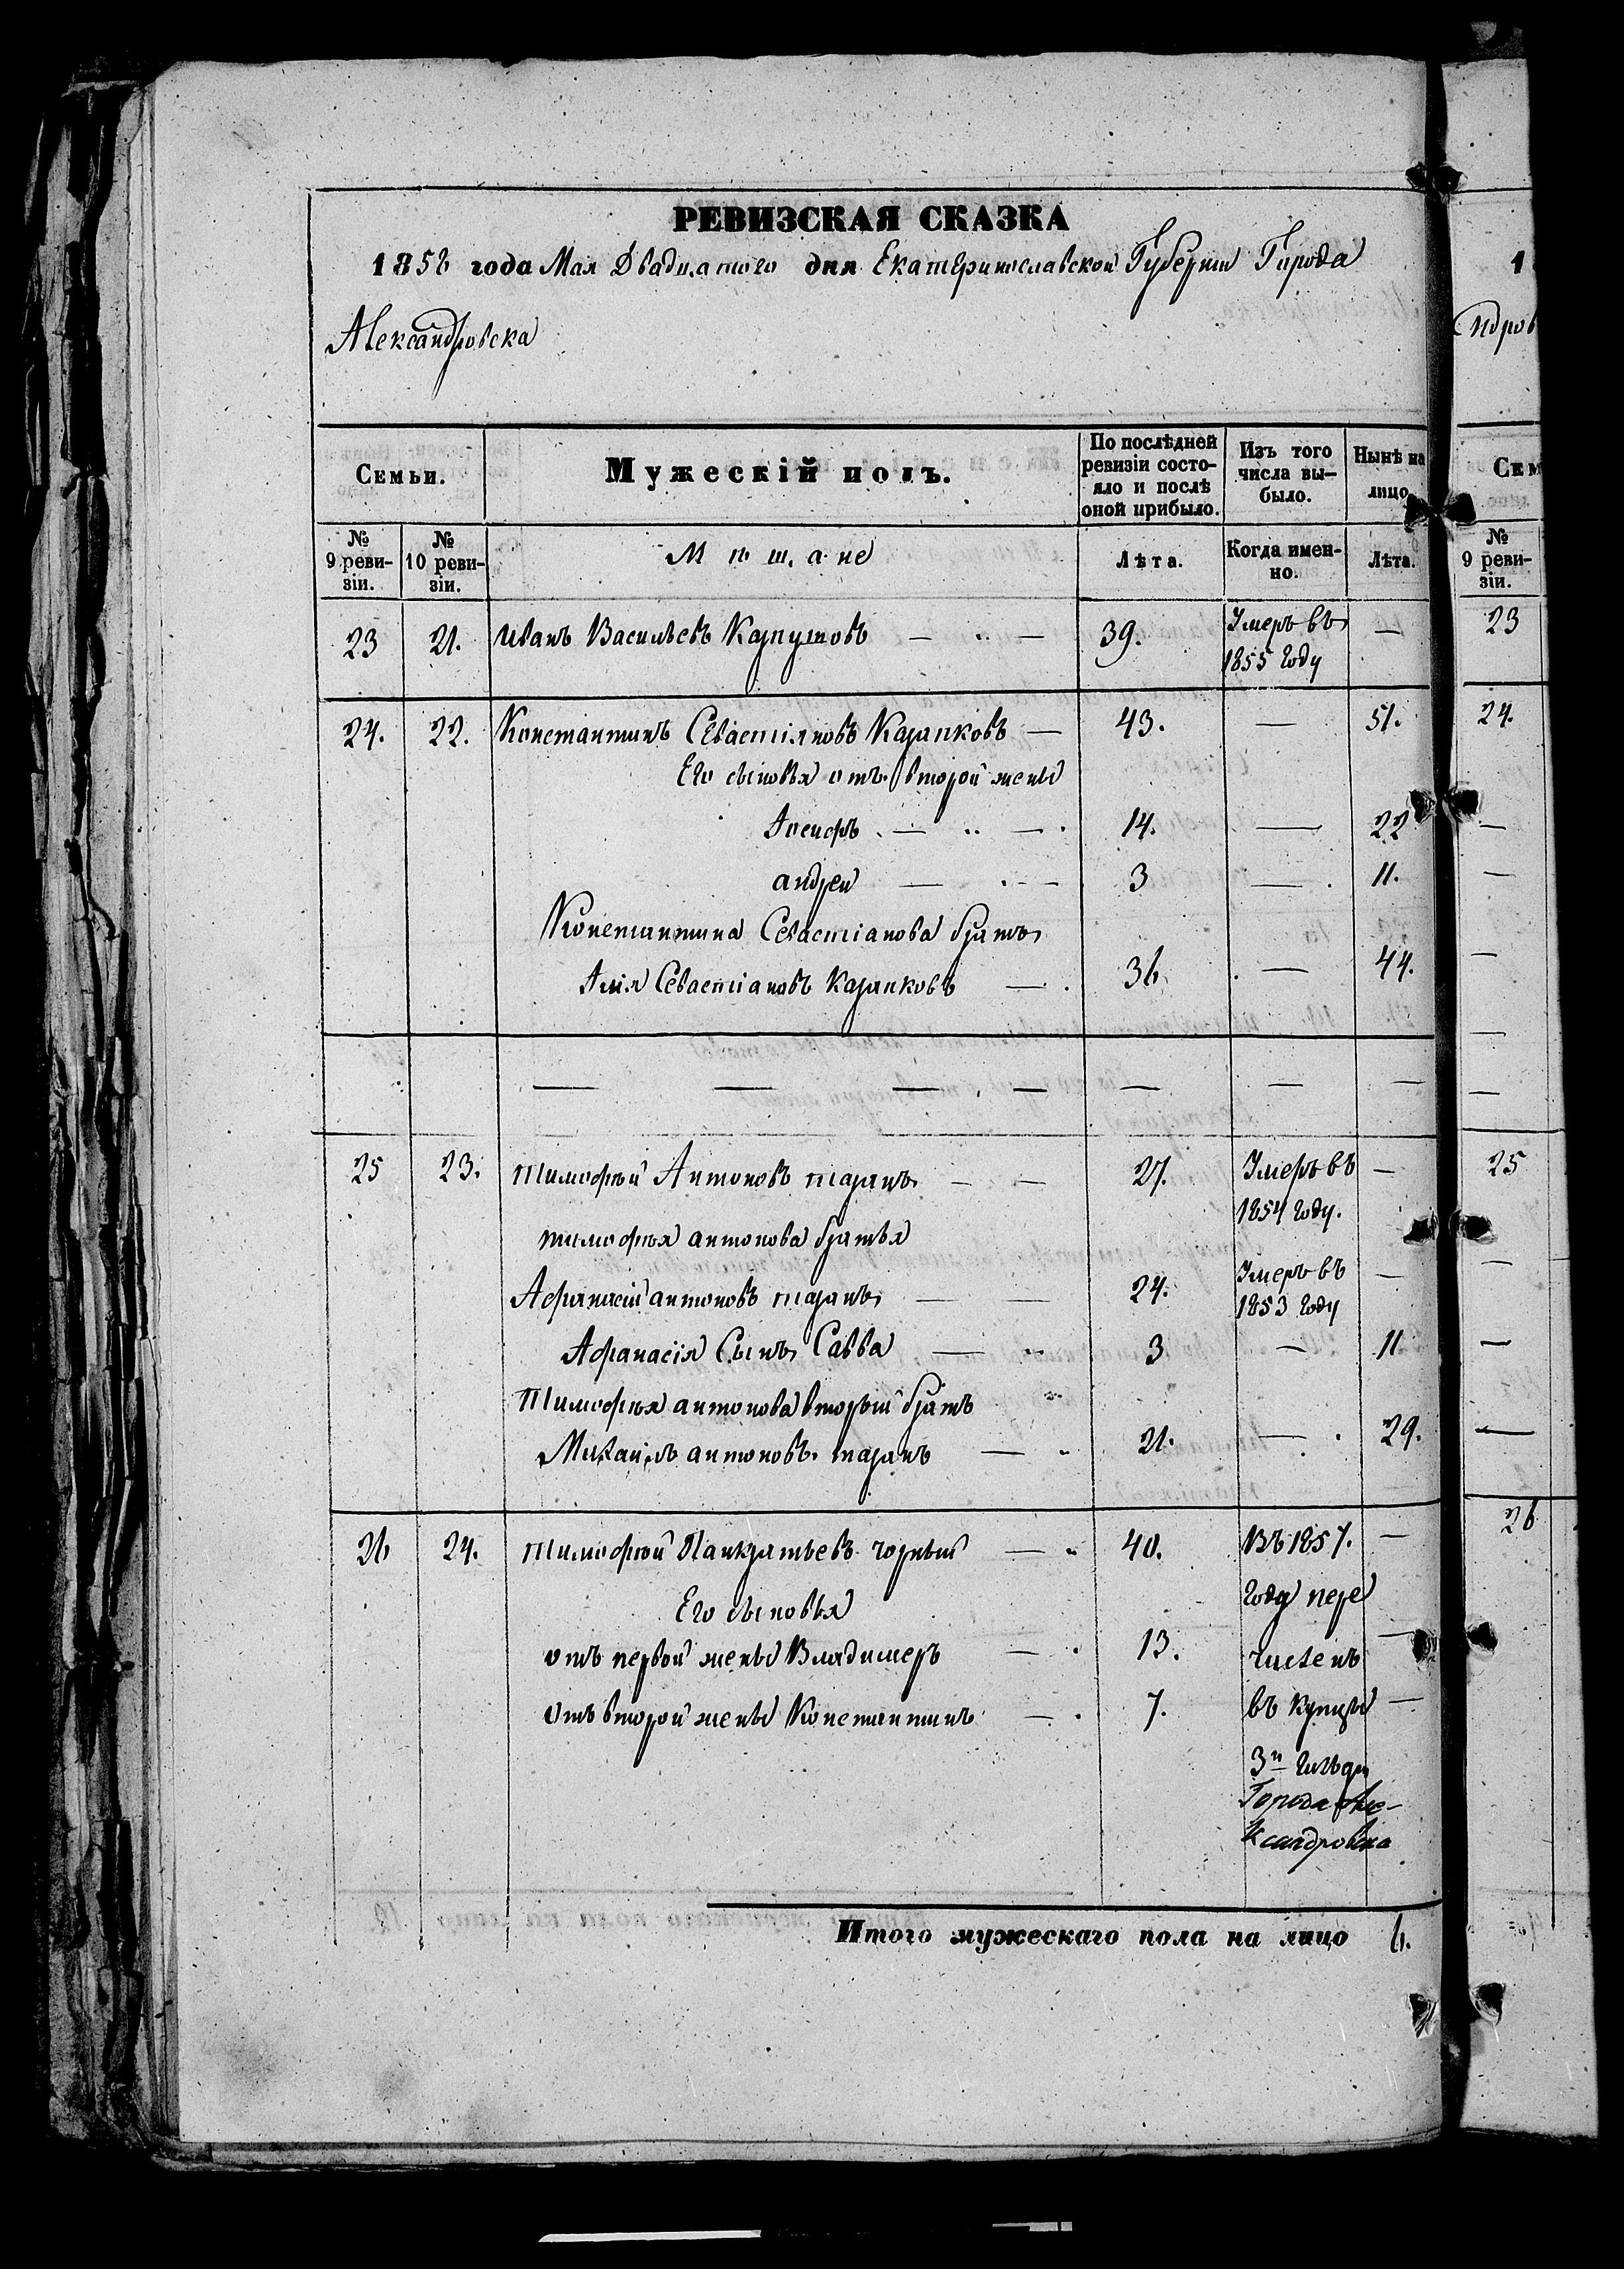 РЕВИЗСКАЯ СКАЗКА
1858 года Мая Двадцатого дня Екатеринославской Губернии Города
Александровска
Семьи.
Мужескій полъ.
По послѣдней ревизіи состояло и послѣ оной прибыло.
Изъ того числа выбыло.
Нынѣ на лицо
№ 9 ревизіи.
№ 10 ревизіи.
Мѣщане
Лѣта.
Когда именно.
Лѣта.
23 21. Иванъ Васильевъ 39. Умеръ въ —
1855 году
24. 22. Константинъ Севастіяновъ Каранковъ — 43. — 51.
Его сыновья отъ второй жены
Іосифъ — 14. — 22
андрей — 3 — 11.
Константина Севастіанова братъ
Илія Севастіановъ Каранковъ — 36 — 44.
— — — — — — —
25 23. Тимофѣй Антоновъ таранъ — 27. Умеръ въ —
1854 году.
тимофѣя антонова братья
Афанасій антоновъ таранъ — 24. Умеръ въ —
1853 году
Афанасія Сынъ Савва — 3 — 11
Тимофѣя антонова вторый братъ
Михаилъ антоновъ таранъ — 21. — 29.
26 24. Тимофѣй Панкратьевъ чорный — 40. Въ 1857. —
Его сыновья
году пере
отъ первой жены Владимеръ — 13. —
численъ
отъ второй жены Константинъ — 7. въ купцы —
3й гильди
Города Але-
ксандровска
Итого мужескаго пола на лицо 6.
1
ндров
Сем
№ 9 ревизіи.
23
24.
—
—
—
—
—
25
—
—
—
26